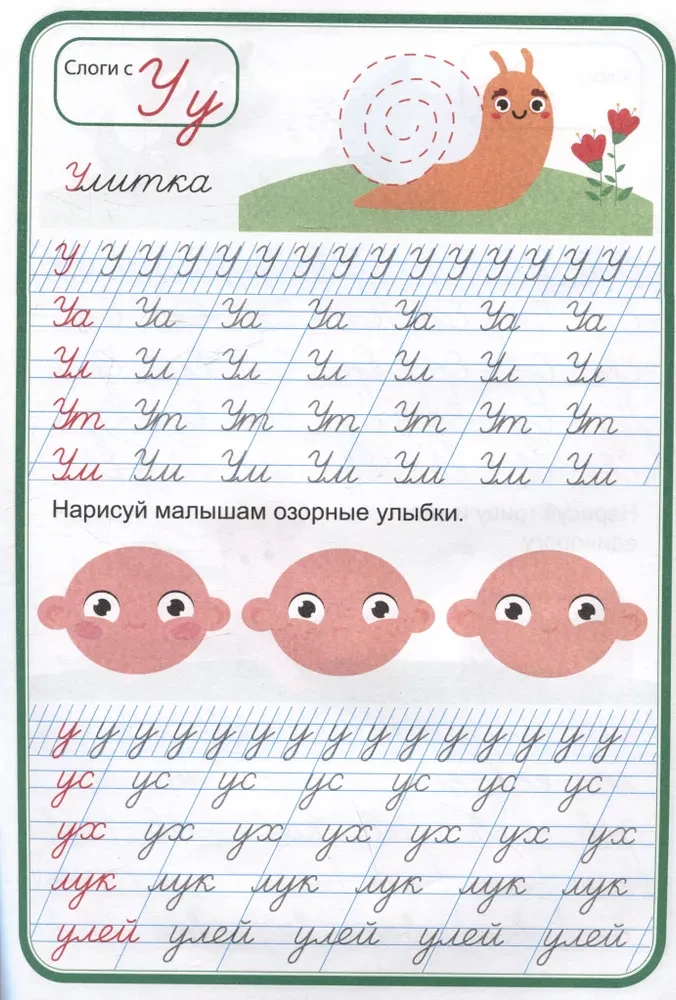 Слоги с У у
Улитка
У У У У У У У У У У У У У У У
Уа Уа Уа Уа Уа Уа Уа
Ул Ул Ул Ул Ул Ул Ул
Ут Ут Ут Ут Ут Ут Ут
Ум Ум Ум Ум Ум Ум Ум
Нарисуй малышам озорные улыбки.
у у у у у у у у у у у у у у у
ус ус ус ус ус ус ус
ух ух ух ух ух ух ух
лук лук лук лук лук лук
улей улей улей улей улей